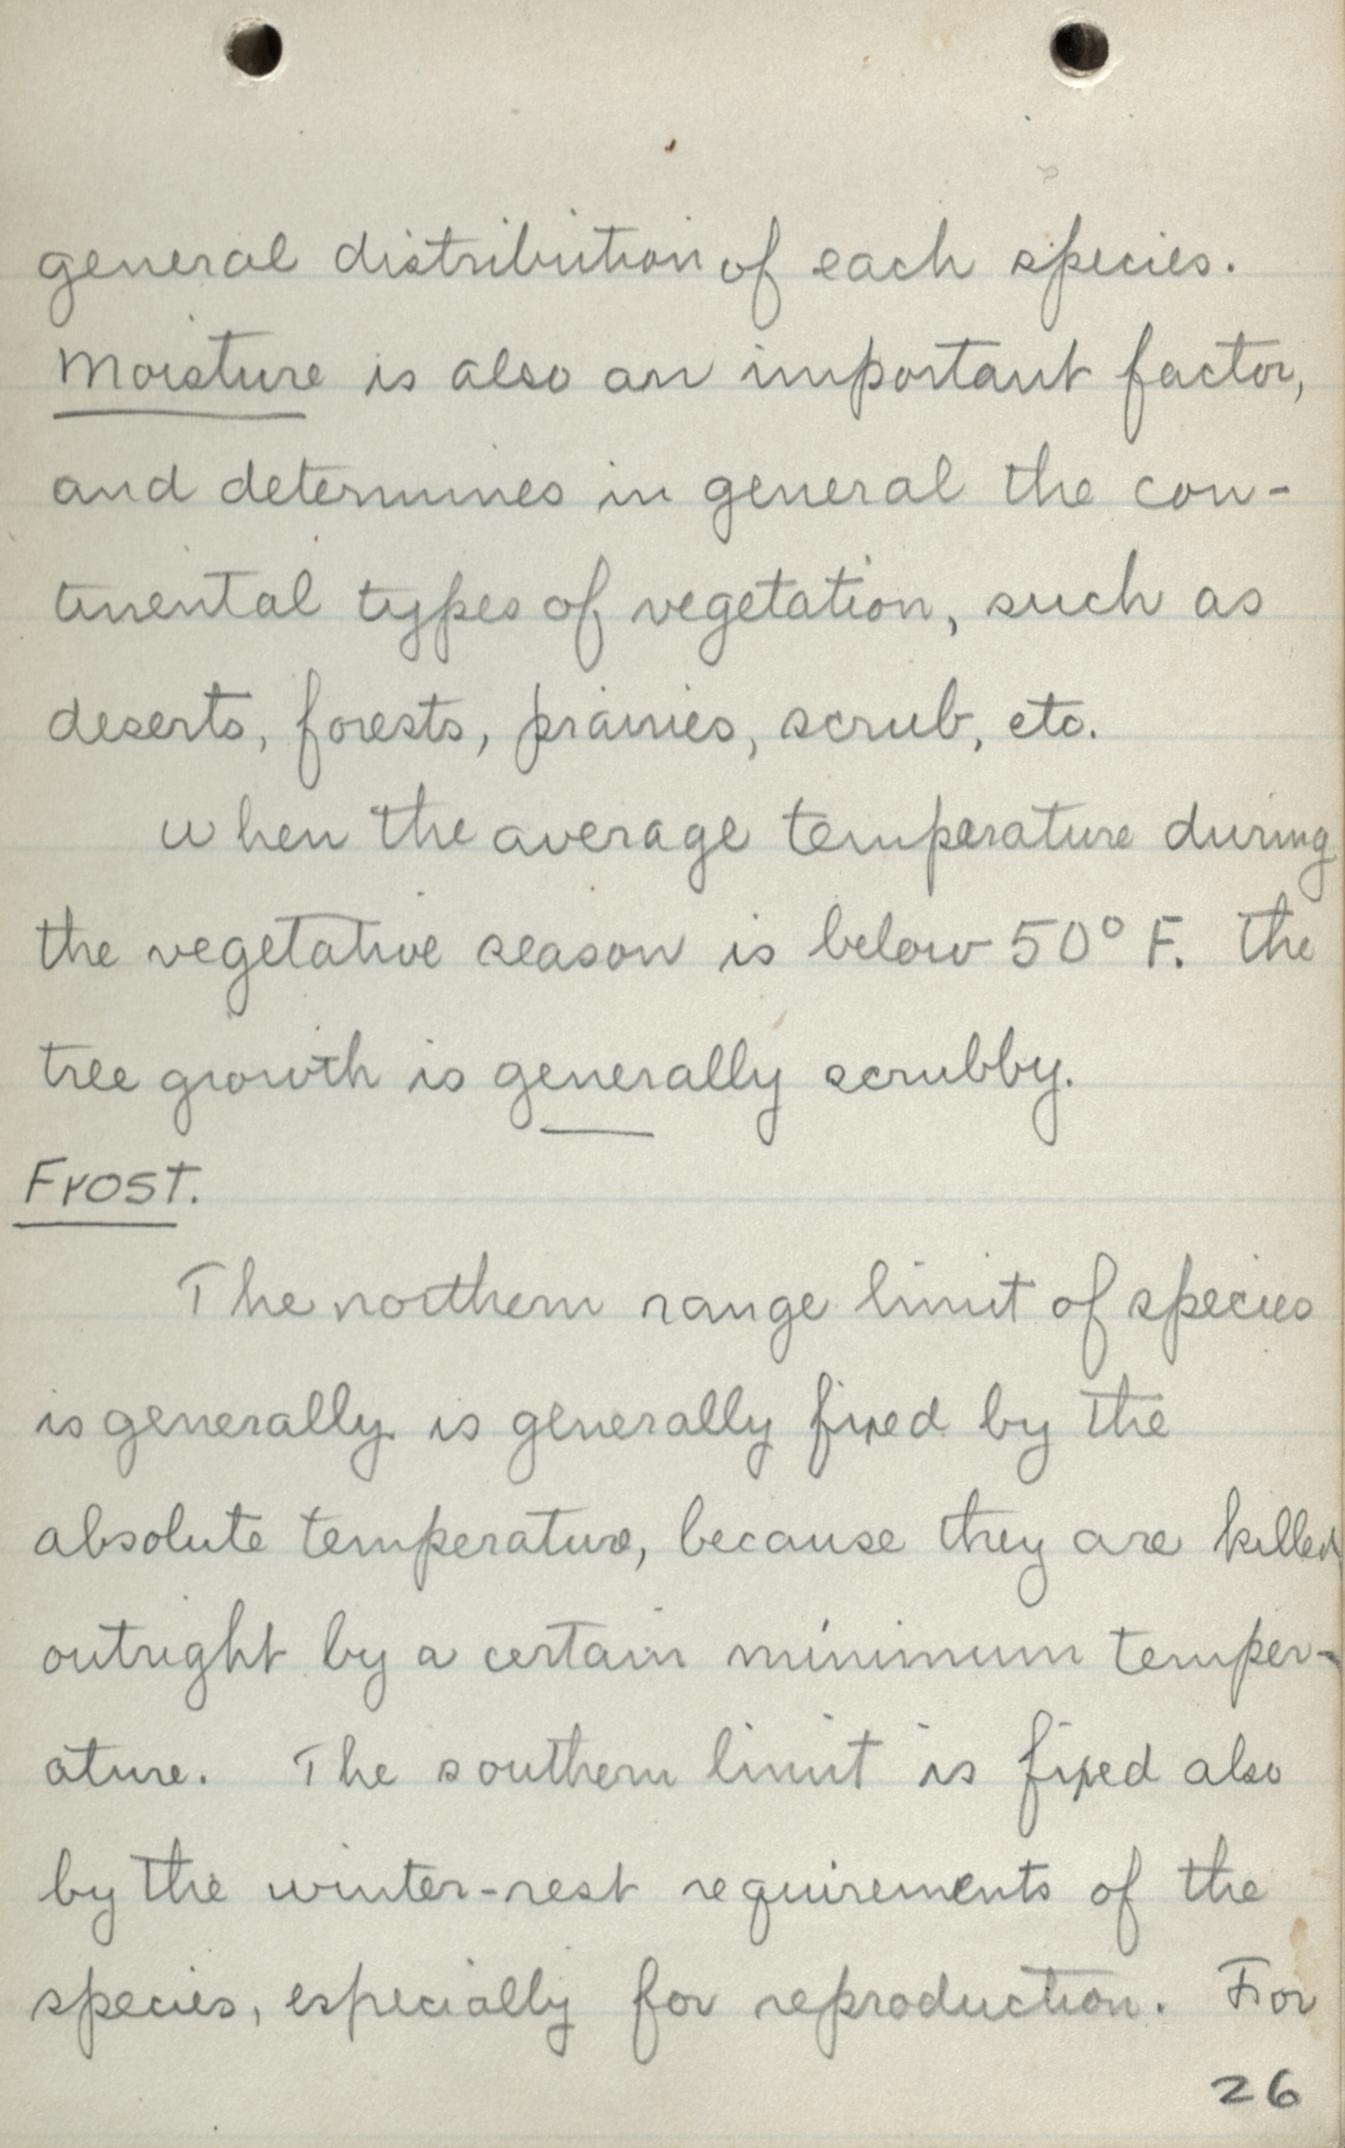 general distribution of each species.
Moisture is also an important factor,
and determines in general the con-
tinental types of vegetation, such as
deserts, forests, prairies, scrub, etc.
When the average temperature during
the vegetative season is below 50° F. the
tree growth is generally scrubby.
Frost.
The northern range limit of species
is generally is generally fixed by the
absolute temperature, because they are killed
outright by a certain minimum temper-
ature. The southern limit is fixed also
by the winter-rest requirements of the
species, especially for reproduction. For
26